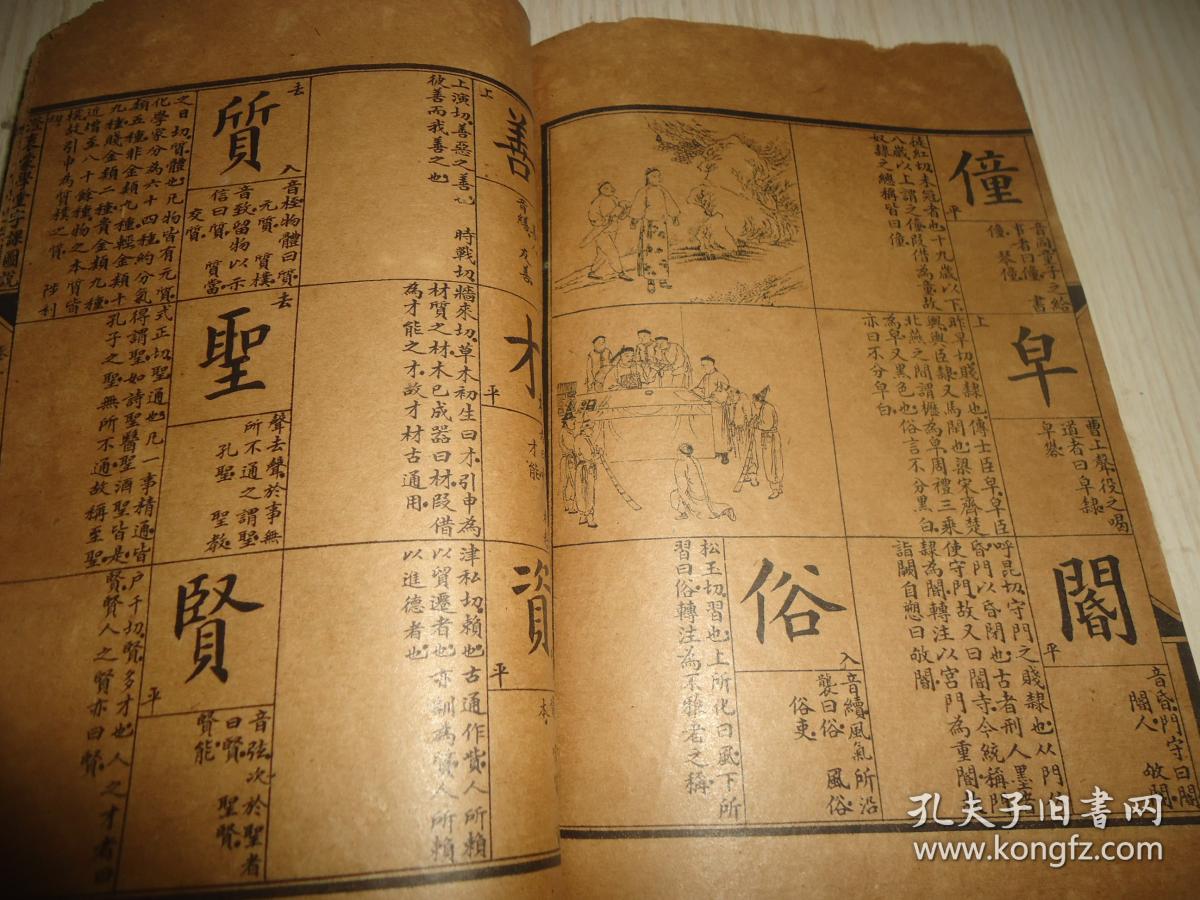 僮
平
音同童子之給
事者曰僮 書
僮 琴僮
徒紅切未冠者也十九歲以下
八歲以上謂之僮叚借為童故
奴隸之總稱皆曰僮
皁
上
曹上聲役之喝
道者曰皁隸
皁㯱
昨早切賤隸也傳士臣皁皁臣
輿輿臣隸又馬閑也梁宋齊楚
北燕之間謂櫪為皁周禮三乘
為皁又黑色也俗言不分黑白
亦曰不分皁白
閽
平
音昏門守曰閽
閽人 敂閽
呼昆切守門之賤隸也从門从
昏門以昏閉也古者刑人墨者
使守門故又曰閽寺今統稱門
隸為閽轉注以宮門為重閽
詣闕自愬曰敂閽
俗
入
音續風氣所沿
襲曰俗 風俗
俗吏
松玉切習也上所化曰風下所
習曰俗轉注為不雅者之稱
善
上
音繕 友善
上演切善惡之善也 時戰切
彼善而我善之也
才
平
才能
牆來切草木初生曰才引申為
材質之材木已成器曰材叚借
為才能之才故才材古通用
資
平
本
津私切賴也古通作貲人所賴
以貿遷者也亦訓為質人所賴
以進德者也
質
去
入
音桎物體曰質
元質 質樸
音致留物以示
信曰質 質當
交質
之日切質體也凡物皆有元質
化學家分為六十四種約分氣
類五種非金類九種輕金類十
九種賤金類二種貴金類九種
近增至八十餘種物之本質皆
樸故引申為質樸之質 陟利
切
聖
去
聲去聲於事無
所不通之謂聖
孔聖 聖教
式正切聖通也凡一事精通皆
得謂聖如詩聖醫聖酒聖皆是
孔子之聖無所不通故稱至聖
賢
平
音弦次於聖者
曰賢 聖賢
賢能
戶千切賢多才也人之才者曰
賢賢人之賢亦曰賢
澄衷蒙學堂字課圖說
孔夫子旧书网
www.kongfz.com